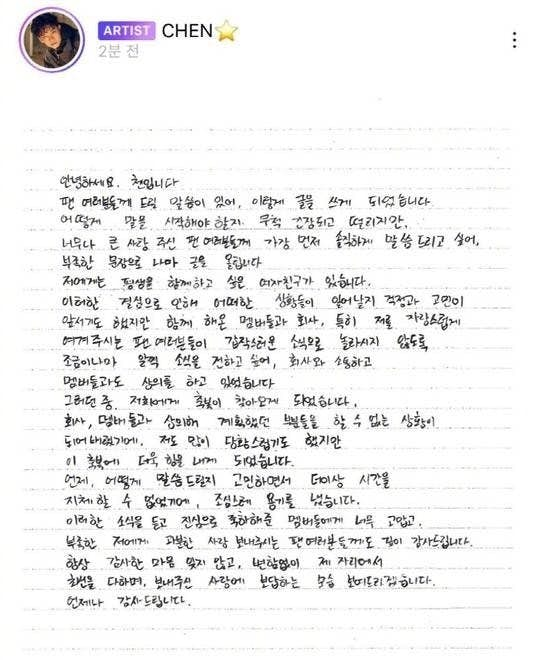 ARTIST CHEN⭐
2분 전
안녕하세요. 첸입니다
팬 여러분들께 드릴 말씀이 있어, 이렇게 글을 쓰게 되었습니다
어떻게 말을 시작해야할지 무척 긴장되고 떨리지만,
너무나 큰 사랑 주신 팬 여러분들께 가장 먼저 솔직하게 말씀드리고 싶어,
부족한 문장으로 나마 글을 올립니다
저에게는 평생을 함께하고 싶은 여자친구가 있습니다.
이러한 결심으로 인해 어떠한 상황들이 일어날지 걱정과 고민이
앞서기도 했지만 함께 해온 멤버들과 회사, 특히 저를 자랑스럽게
여겨주시는 팬 여러분들이 갑작스러운 소식으로 놀라시지 않도록
조금이나마 일찍 소식을 전하고 싶어, 회사와 소통하고
멤버들과도 상의를 하고 있었습니다
그러던 중, 저희에게 축복이 찾아오게 되었습니다.
회사, 멤버들과 상의해 계획했던 부분들을 할 수 없는 상황이
되어버렸기에, 저도 많이 당황스럽기도 했지만
이 축복에 더욱 힘을 내게 되었습니다.
언제, 어떻게 말씀드릴지 고민하면서 더이상 시간을
지체할 수 없었기에, 조심스레 용기를 냈습니다.
이러한 소식을 듣고 진심으로 축하해준 멤버들에게 너무 고맙고,
부족한 저에게 과분한 사랑 보내주시는 팬여러분들께도 깊이 감사드립니다.
항상 감사한 마음 잊지 않고, 변함없이 제 자리에서
최선을 다하며, 보내주신 사랑에 보답하는 모습 보여드리겠습니다.
언제나 감사드립니다.